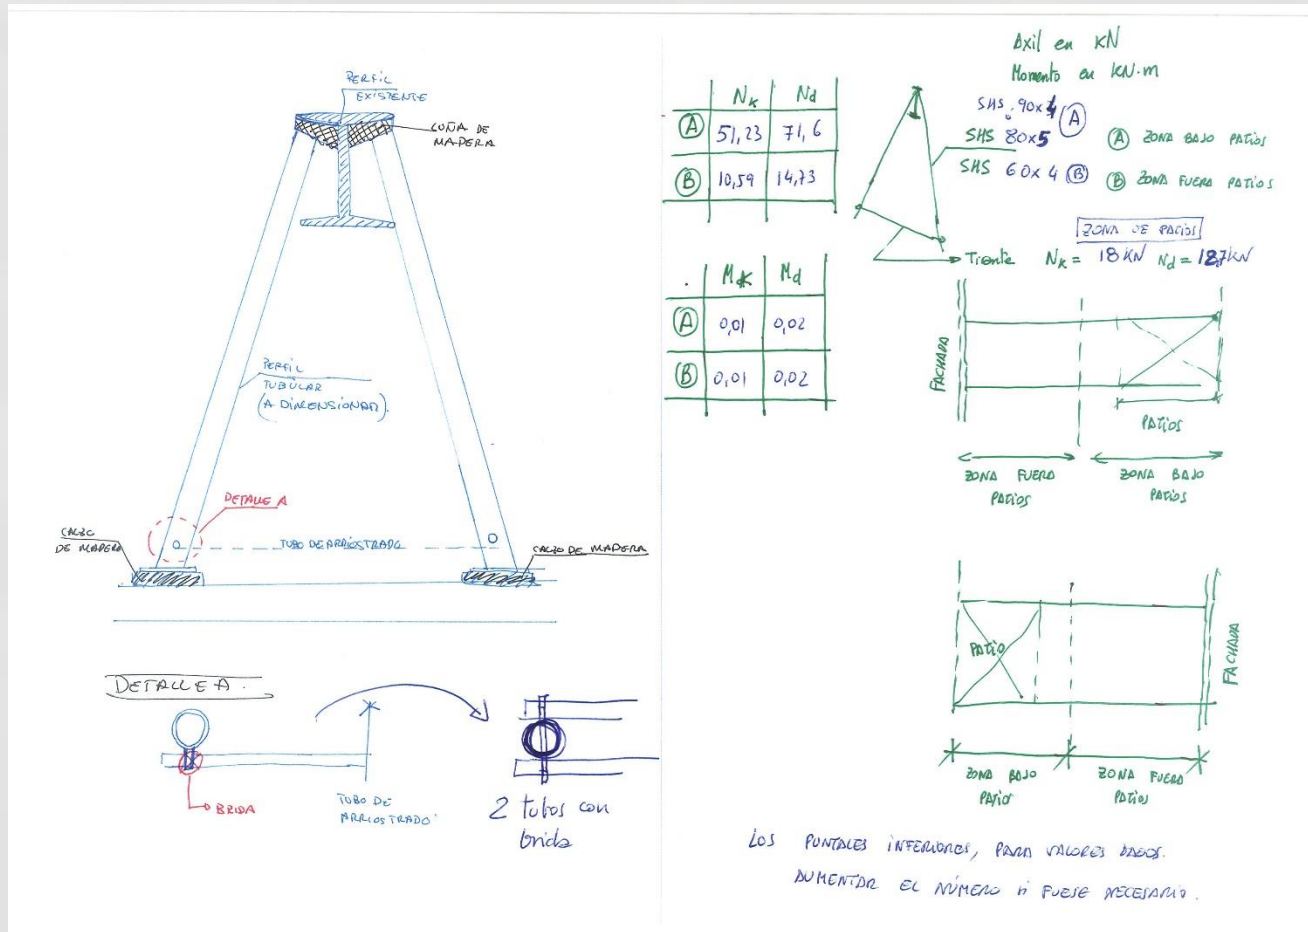 PERFIL
EXISTENTE
CUÑA DE
MADERA
PERFIL
TUBULAR
(A DIMENSIONAR).
DETALLE A
CALZO
DE MADERA
TUBO DE ARRIOSTRADO
CALZO DE MADERA
DETALLE A.
BRIDA
TUBO DE
ARRIOSTRADO
2 tubos con
brida
Axil en KN
Momento en KN·m
Nk Nd
A 51,23 71,6
B 10,59 14,73
SHS 90x4 A
SHS 80x5
SHS 60x4 B
A ZONA BAJO PATIOS
B ZONA FUERA PATIOS
ZONA DE PATIOS
Tirante Nk = 18 KN Nd = 18,7 KN
Mk Md
A 0,01 0,02
B 0,01 0,02
FACHADA
PATIOS
ZONA FUERA
PATIOS
ZONA BAJO
PATIOS
PATIO
FACHADA
ZONA BAJO
PATIO
ZONA FUERA
PATIOS
LOS PUNTALES INFERIORES, PARA VALORES DADOS.
AUMENTAR EL NÚMERO si FUESE NECESARIO.